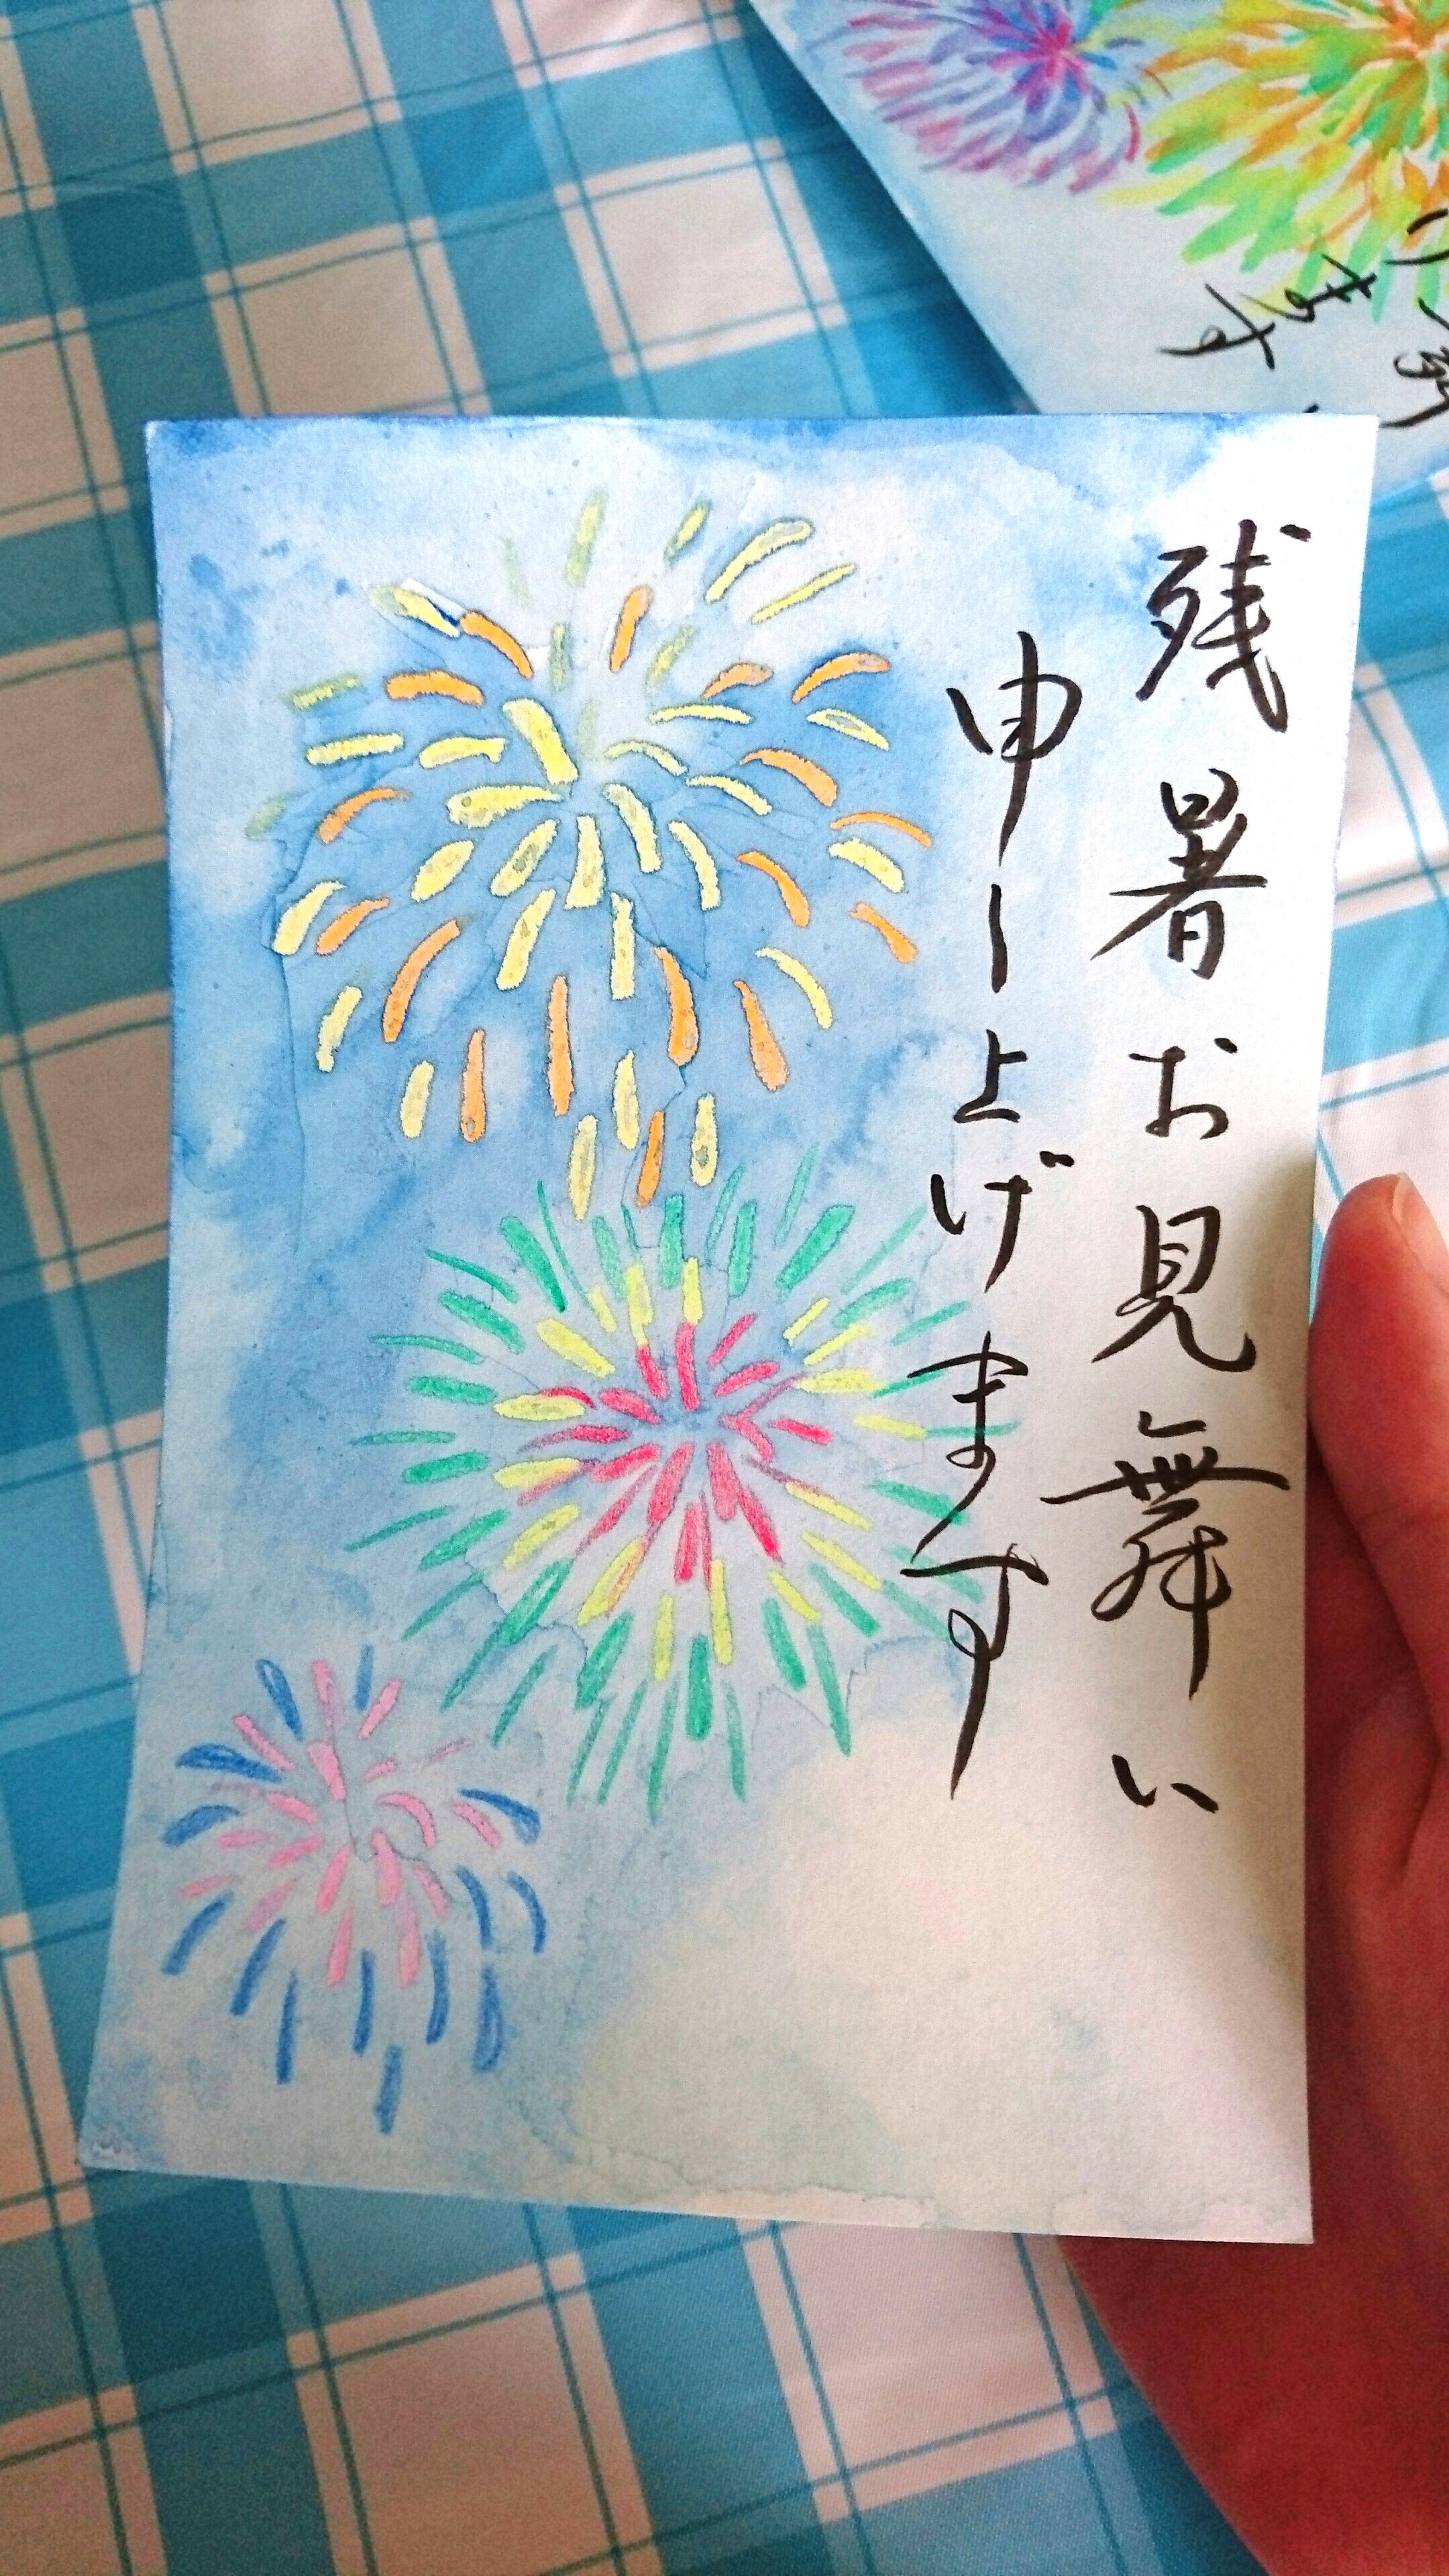 残暑お見舞い
申し上げます
ます